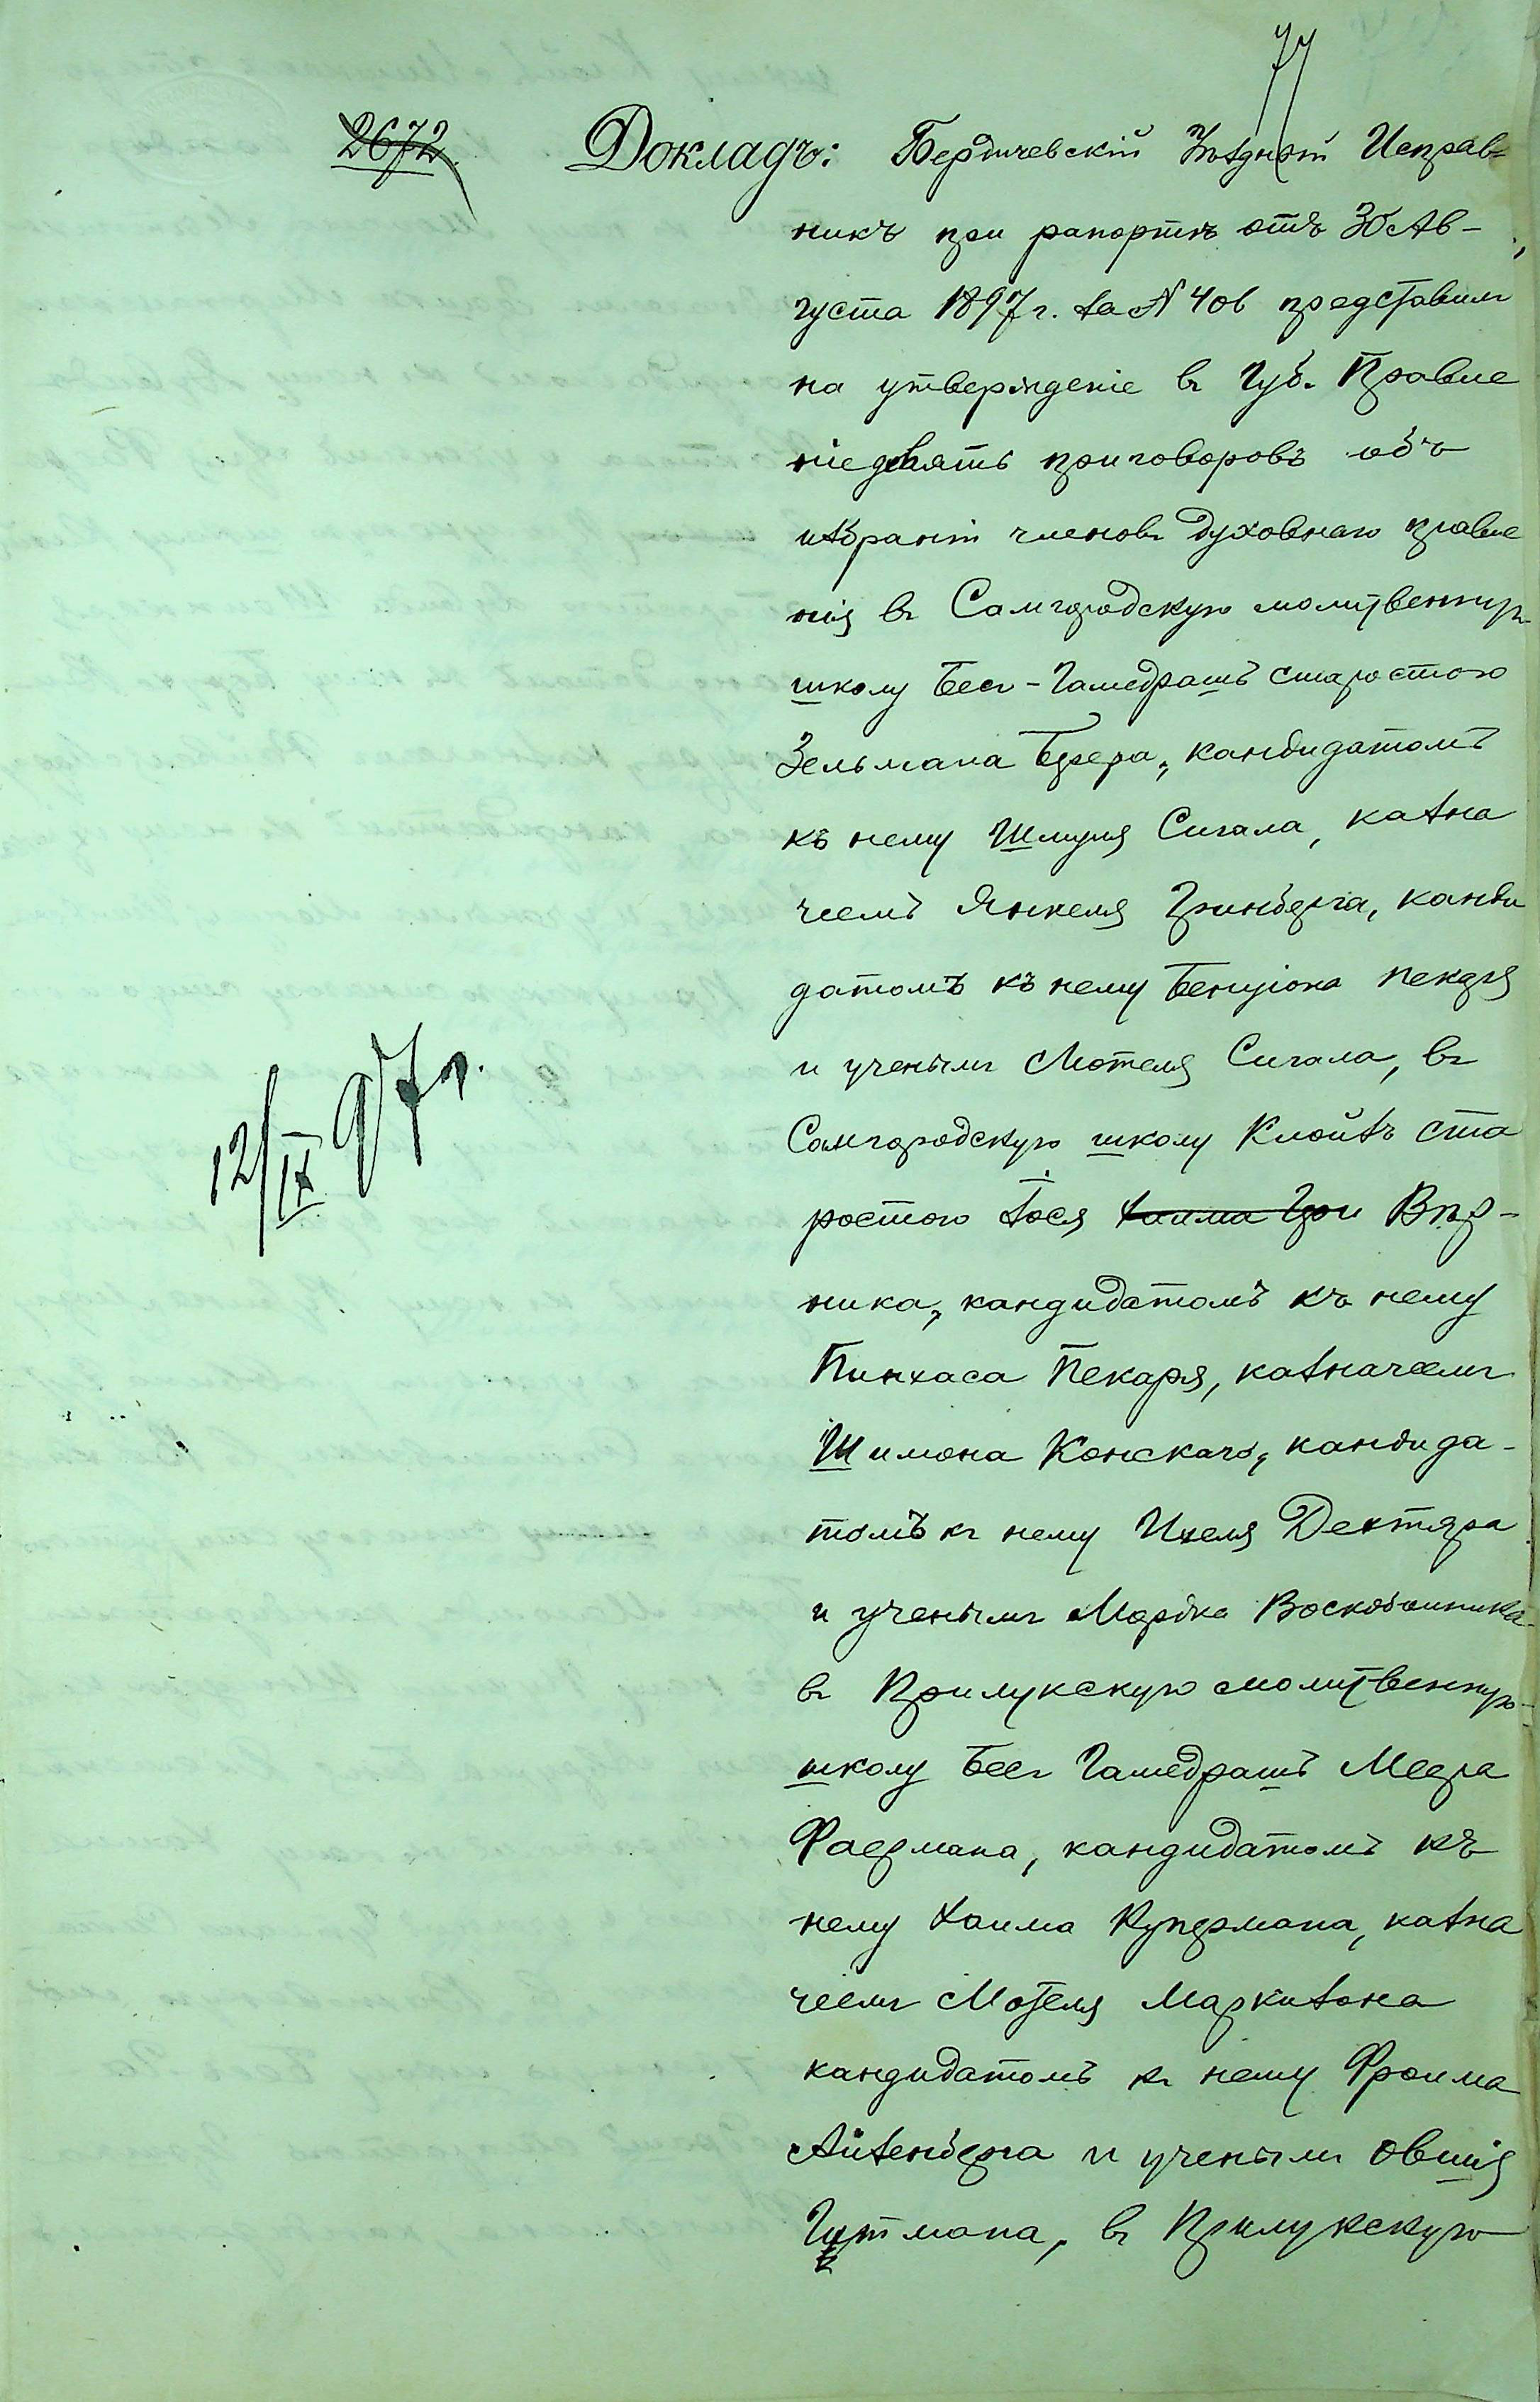 77
2672.
Докладъ: Бердичевскій Уѣздный Исправ-
никъ при рапортѣ отъ 30 Ав-
густа 1897 г. за № 406 представилъ
на утвержденіе въ Губ. Правле
ніе девять приговоровъ объ
избраніи членовъ духовнаго правле
нія въ Самгородскую молитвенную
школу Бесъ-Гамедрашъ старостою
Зельмана кандидатомъ
къ нему Шмуля Сигала, казна
чеемъ Янкеля Гринберга, канди
датомъ къ нему Бенціона Пекаря
и ученымъ Мотеля Сигала, въ
Самгородскую школу Клойзъ ста
ростою Іося Хаима
ника, кандидатомъ къ нему
Пинхаса Пекаря, казначеемъ
Шимона Конскаго, кандида-
томъ къ нему Ицеля Дехтяра
и ученымъ Мордка Воскобойника
въ Прилукскую молитвенную
школу Бесъ Гамедрашъ Меера
Фаермана, кандидатомъ къ
нему Хаима Купермана, казна
чеемъ Мотеля Маркизона
кандидатомъ къ нему Фроима
Айзенберга и ученымъ Овшія
Гутмана, въ Прилукскую
12/IX 97 г.